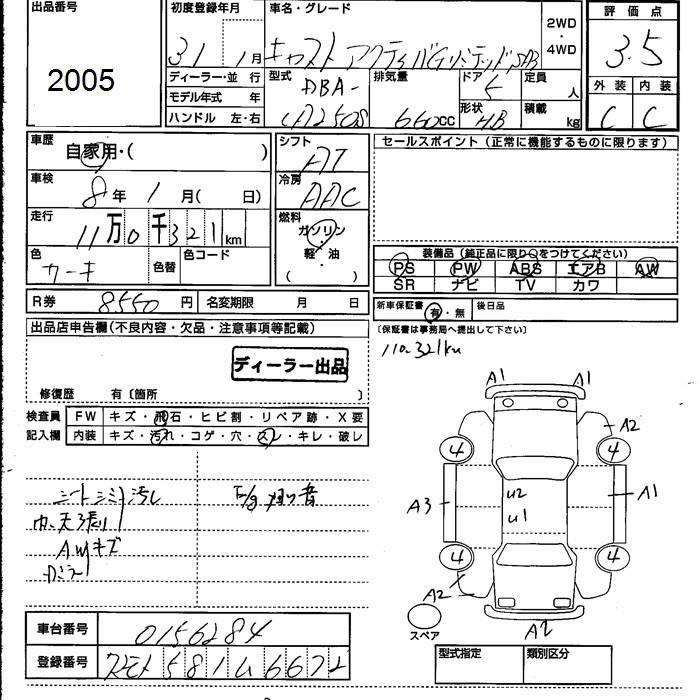 出品番号
2005
初度登録年月
31年1月
車名・グレード
キャスト アクティバGリミテッドSA3
2WD・4WD
評価点
3.5
外装 内装
C C
ディーラー・並行
モデル年式 年
ハンドル 左・右
型式
DBA-
LA250S
排気量
660cc
ドア
5
形状
HB
定員 人
積載 kg
車歴
自家用・( )
車検
8年 1月( 日)
走行
11万0千321km
色
カーキ
色替
色コード
シフト
AT
冷房
AAC
燃料
ガソリン・軽油
( )
セールスポイント(正常に機能するものに限ります)
装備品(純正品に限り○をつけてください)
PS PW ABS エアB AW
SR ナビ TV カワ
R券 8550円 名変期限 月 日
新車保証書 有・無 後日品
〔保証書は事務局へ提出して下さい〕
110.321km
出品店申告欄(不良内容・欠品・注意事項等記載)
ディーラー出品
修復歴 有〔箇所 〕
検査員記入欄
FW キズ・飛石・ヒビ割・リペア跡・X要
内装 キズ・汚れ・コゲ・穴・スレ・キレ・破レ
シートシミ汚し
内、天張り
A.Wキズ
E/g 異音
A1 A1
A2
4 4
A3 U2 A1
U1
4 4
A2
A2
スペア
車台番号 0156284
登録番号 581 6672
型式指定 類別区分